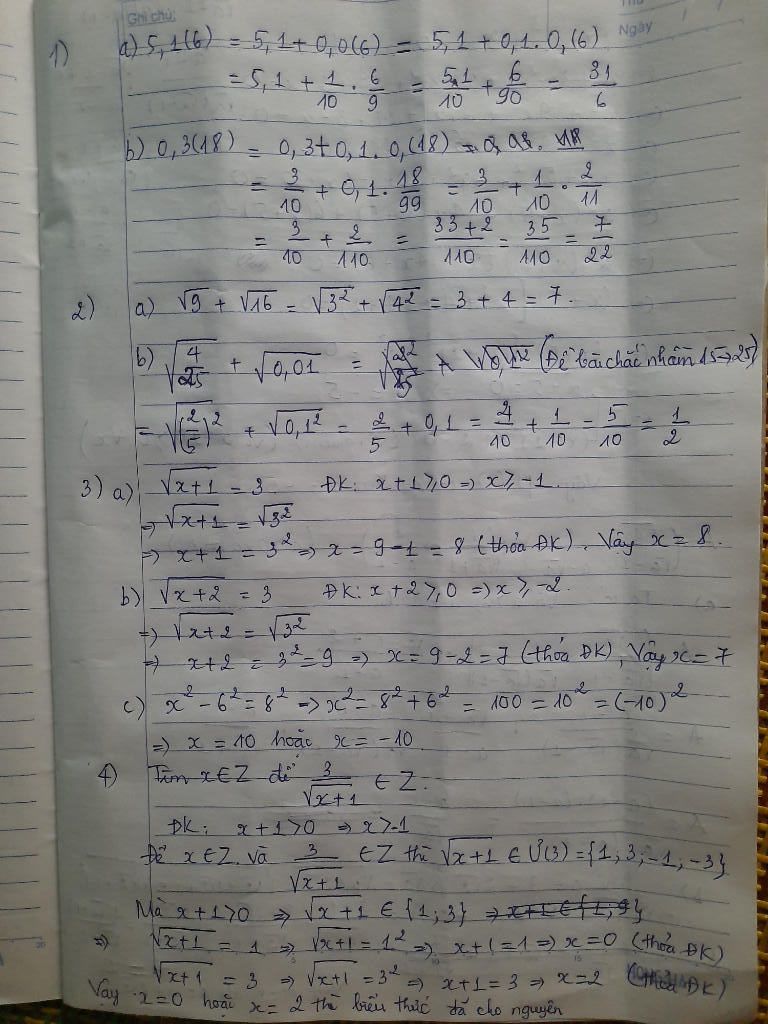 Ghi chú:
Ngày
1) a) 5,1(6) = 5,1 + 0,0(6) = 5,1 + 0,1 . 0,(6)
= 5,1 + 1/10 . 6/9 = 51/10 + 6/90 = 31/6
b) 0,3(18) = 0,3 + 0,1 . 0,(18)
= 3/10 + 0,1 . 18/99 = 3/10 + 1/10 . 2/11
= 3/10 + 2/110 = (33 + 2)/110 = 35/110 = 7/22
2) a) √9 + √16 = √3² + √4² = 3 + 4 = 7.
b) √(4/25) + √0,01 = (Đề bài chắc nhầm 15 → 25)
= √(2/5)² + √0,1² = 2/5 + 0,1 = 4/10 + 1/10 = 5/10 = 1/2
3) a) √(x+1) = 3 ĐK: x+1 ≥ 0 ⇒ x ≥ -1.
⇒ √(x+1) = √3²
⇒ x+1 = 3² ⇒ x = 9 - 1 = 8 (thỏa ĐK). Vậy x = 8.
b) √(x+2) = 3 ĐK: x+2 ≥ 0 ⇒ x ≥ -2.
⇒ √(x+2) = √3²
⇒ x+2 = 3² = 9 ⇒ x = 9 - 2 = 7 (thỏa ĐK), Vậy x = 7
c) x² - 6² = 8² ⇒ x² = 8² + 6² = 100 = 10² = (-10)²
⇒ x = 10 hoặc x = -10.
4) Tìm x ∈ Z để 3/√(x+1) ∈ Z.
ĐK: x+1 > 0 ⇒ x > -1
Để x ∈ Z và 3/√(x+1) ∈ Z thì √(x+1) ∈ Ư(3) = {1; 3; -1; -3}
Mà x+1 > 0 ⇒ √(x+1) ∈ {1; 3} ⇒ x+1 ∈ {1; 9}
⇒ √(x+1) = 1 ⇒ √(x+1) = 1² ⇒ x+1 = 1 ⇒ x = 0 (thỏa ĐK)
√(x+1) = 3 ⇒ √(x+1) = 3² ⇒ x+1 = 3 ⇒ x = 2 (thỏa ĐK)
Vậy x = 0 hoặc x = 2 thì biểu thức đã cho nguyên